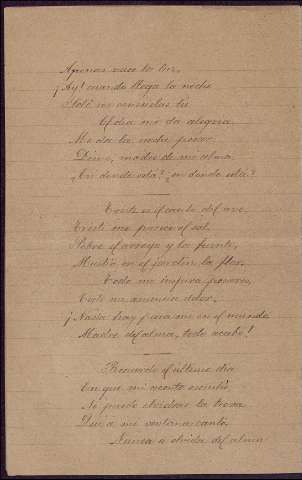 Apenas nace la luz,
¡Ay! cuando llega la noche
Solo me consuelas tu
El dia me da alegria
Me da la noche pesar
Dime, madre de mi alma
¿En donde está? ¿en donde está?
Triste es el canto del ave
Triste me parece el sol
Pobre el arroyo y la fuente,
Mustia en el jardin la flor.
Todo me inspira pesares,
Todo me anuncia dolor,
¡Nada hay para mi en el mundo
Madre del alma, todo acabó!
Recuerdo el último dia
En que mi acento escuchó
No puedo olvidar la trova
Que a mi ventana cantó
Nunca se olvida del alma